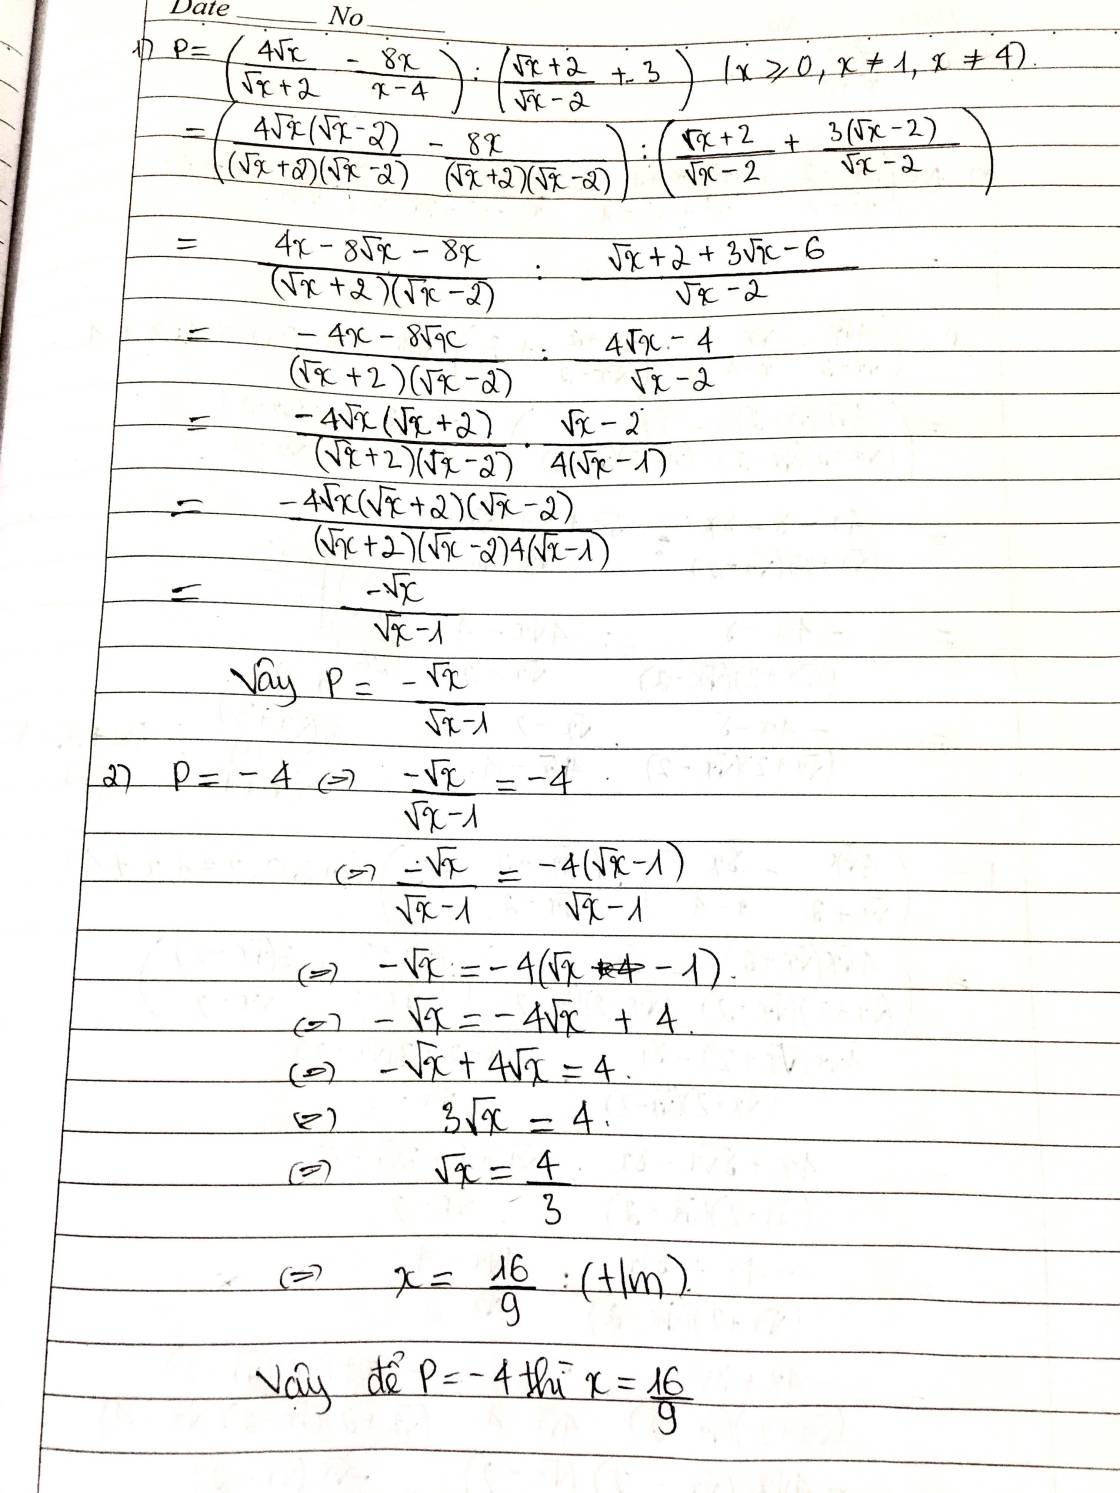 Date ____ No ____
1) P = (4√x/(√x+2) - 8x/(x-4)) : ((√x+2)/(√x-2) + 3) (x ⩾ 0, x ≠ 1, x ≠ 4).
= (4√x(√x-2)/((√x+2)(√x-2)) - 8x/((√x+2)(√x-2))) : ((√x+2)/(√x-2) + 3(√x-2)/(√x-2))
= (4x - 8√x - 8x)/((√x+2)(√x-2)) : (√x+2+3√x-6)/(√x-2)
= (-4x - 8√x)/((√x+2)(√x-2)) : (4√x - 4)/(√x-2)
= -4√x(√x+2)/((√x+2)(√x-2)) . (√x-2)/(4(√x-1))
= -4√x(√x+2)(√x-2)/((√x+2)(√x-2)4(√x-1))
= -√x/(√x-1)
Vậy P = -√x/(√x-1)
2) P = -4 (=) -√x/(√x-1) = -4
(=) -√x/(√x-1) = -4(√x-1)/(√x-1)
(=) -√x = -4(√x - 1).
(=) -√x = -4√x + 4.
(=) -√x + 4√x = 4.
(=) 3√x = 4.
(=) √x = 4/3
(=) x = 16/9 : (t/m).
Vậy để P = -4 thì x = 16/9